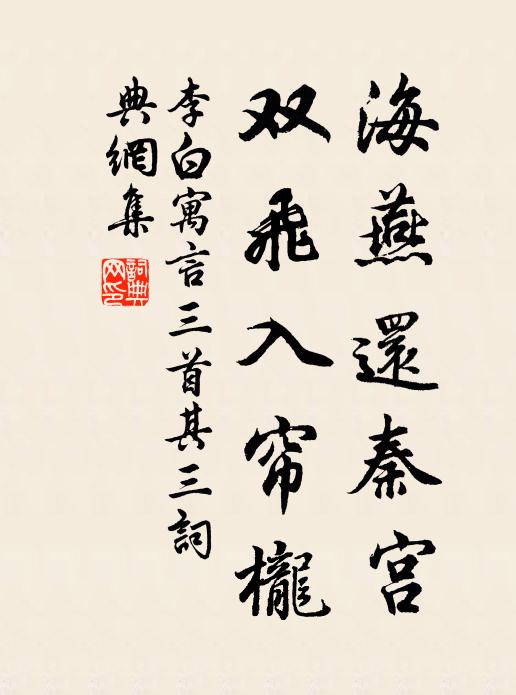 海燕還秦宫
双飛入帘櫳
李白寓言三首其三詞
典網集
詞典
网印